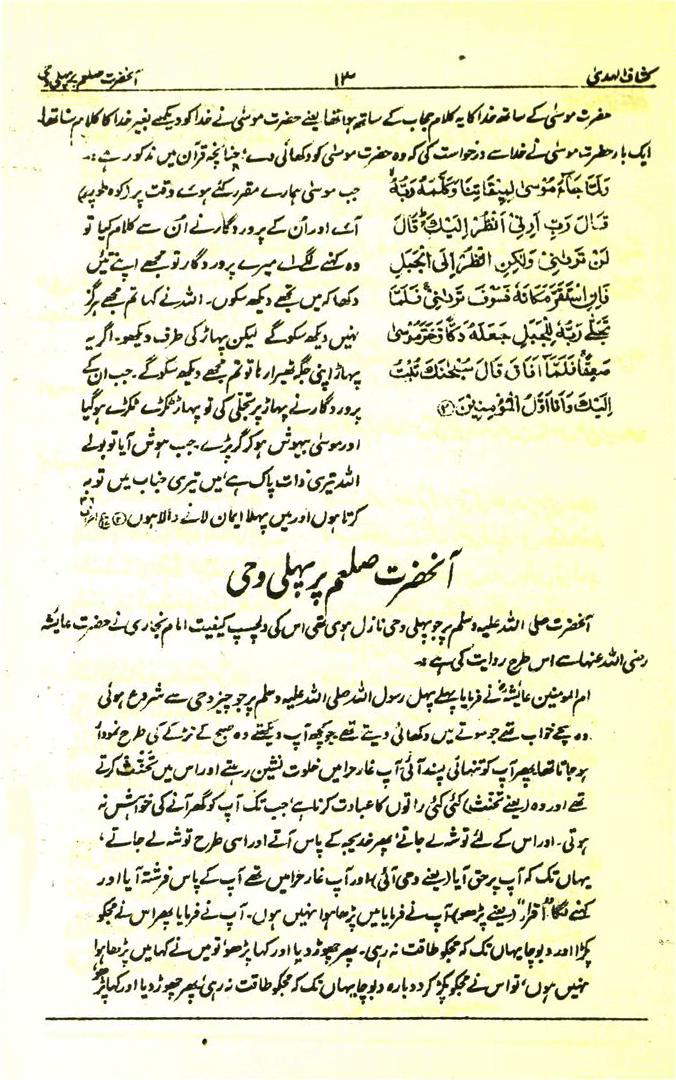 کشاف الہدیٰ ۱۳ آنحضرت صلعم پر پہلی وحی
حضرت موسیٰ کے ساتھ خدا کا یہ کلام حجاب کے ساتھ ہوا تھا یعنے حضرت موسیٰ نے خدا کو دیکھے بغیر خدا کا کلام سنا تھا۔
ایک بار حضرت موسیٰ نے خدا سے درخواست کی کہ وہ حضرت موسیٰ کو دکھائی دے، چنانچہ قرآن میں مذکور ہے:۔
وَلَمَّا جَاءَ مُوْسٰى لِمِيْقَاتِنَا وَكَلَّمَهٗ رَبُّهٗ
قَالَ رَبِّ اَرِنِيْ اَنْظُرْ اِلَيْكَ قَالَ
لَنْ تَرٰىنِيْ وَلٰكِنِ انْظُرْ اِلَى الْجَبَلِ
فَاِنِ اسْتَقَرَّ مَكَانَهٗ فَسَوْفَ تَرٰىنِيْ فَلَمَّا
تَجَلّٰى رَبُّهٗ لِلْجَبَلِ جَعَلَهٗ دَكًّا وَّخَرَّ مُوْسٰى
صَعِقًا فَلَمَّآ اَفَاقَ قَالَ سُبْحٰنَكَ تُبْتُ
اِلَيْكَ وَاَنَا اَوَّلُ الْمُؤْمِنِيْنَ (۲)
جب موسیٰ ہمارے مقرر کئے ہوئے وقت پر (کوہ طور پر)
آئے اور اُن کے پروردگار نے اُن سے کلام کیا تو
وہ کہنے لگے اے میرے پروردگار تو مجھے اپنے تئیں
دکھا کہ میں تجھے دیکھ سکوں۔ اللہ نے کہا تم مجھے ہرگز
نہیں دیکھ سکوگے لیکن پہاڑ کی طرف دیکھو۔ اگر یہ
پہاڑ اپنی جگہ ٹھیرا رہا تو تم مجھے دیکھ سکوگے۔ جب ان کے
پروردگار نے پہاڑ پر تجلی کی تو پہاڑ ٹکڑے ٹکڑے ہوگیا
اور موسیٰ بیہوش ہوکر گر پڑے۔ جب ہوش آیا تو بولے
اللہ تیری ذات پاک ہے، میں تیری جناب میں توبہ
کرتا ہوں اور میں پہلا ایمان لانے والا ہوں (۲)
آنحضرت صلعم پر پہلی وحی
آنحضرت صلی اللہ علیہ وسلم پر جو پہلی وحی نازل ہوی تھی اس کی دلچسپ کیفیت امام بخاری نے حضرت عایشہ
رضی اللہ عنہا سے اس طرح روایت کی ہے:۔
ام المومنین عائشہؓ نے فرمایا پہلے پہل رسول اللہ صلی اللہ علیہ وسلم پر جو چیز وحی سے شروع ہوئی
وہ سچے خواب تھے جو سوتے میں دکھائی دیتے تھے، جو کچھ آپ دیکھتے وہ صبح کے تڑکے کی طرح نمودار
ہوجاتا تھا، پھر آپ کو تنہائی پسند آئی آپ غار حرا میں خلوت نشین رہتے اور اس میں تحنّث کرتے
تھے اور وہ (یعنے تحنث) کئی کئی راتوں کا عبادت کرنا ہے، جب تک آپ کو گھر آنے کی خواہش نہ
ہوتی۔ اور اس کے لئے توشہ لے جاتے، پھر خدیجہ کے پاس آتے اور اسی طرح توشہ لے جاتے،
یہاں تک کہ آپ پر حق آیا (یعنے وحی آئی) اور آپ غار حرا میں تھے آپ کے پاس فرشتہ آیا اور
کہنے لگا "اقرا" (یعنے پڑھو) آپ نے فرمایا میں پڑھا ہوا نہیں ہوں۔ آپ نے فرمایا پھر اس نے مجکو
پکڑا اور دبوچا یہاں تک کہ مجکو طاقت نہ رہی۔ پھر چھوڑ دیا اور کہا پڑھو تو میں نے کہا میں پڑھا ہوا
نہیں ہوں، تو اس نے مجکو پکڑ کر دوبارہ دبوچا یہاں تک کہ مجکو طاقت نہ رہی، پھر چھوڑ دیا اور کہا پڑھو